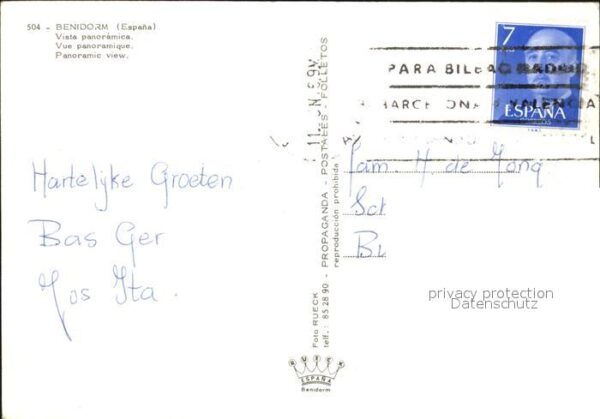 504 - BENIDORM (España)
Vista panorámica.
Vue panoramique.
Panoramic view.
7
PARA BILBAO MADRID
BARCELONA Y VALENCIA
ESPAÑA
Hartelijke Groeten
Bas Ger
Jos Ita.
Fam. H. de Jong
Sch
Bu
Foto RUECK - PROPAGANDA - POSTALES - FOLLETOS
telf.: 85 28 90 - reproducción prohibida
privacy protection
Datenschutz
RUECK
ESPAÑA
Benidorm